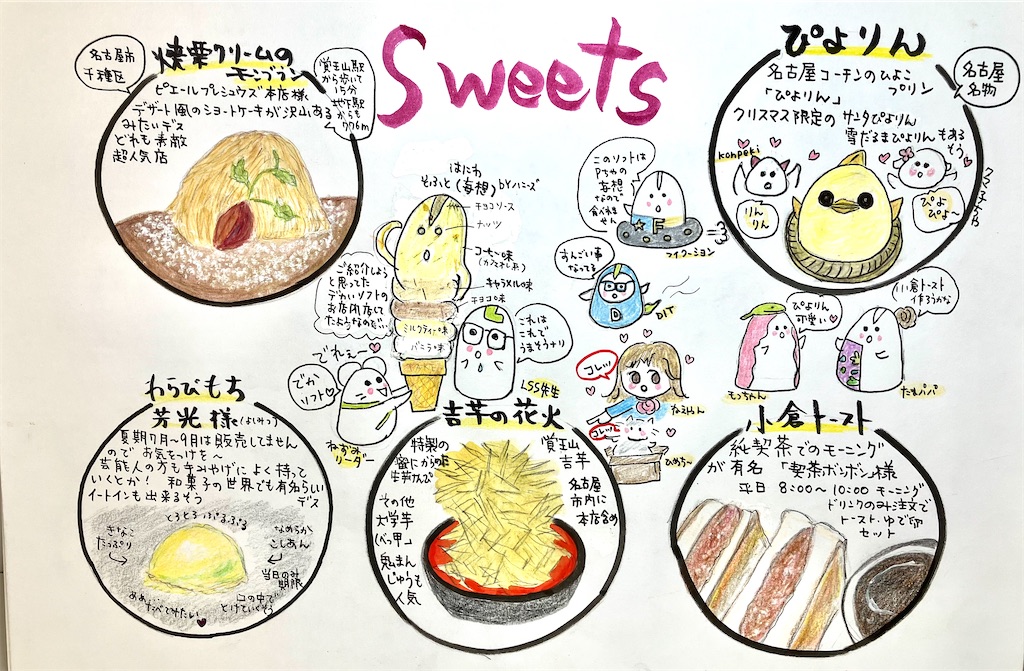 Sweets
名古屋市
千種区
焼栗クリームの
モンブラン
覚王山駅
から歩いて
15分
地下駅
からも
776m
ピエールプレシュウズ本店様
デザート風のショートケーキが沢山ある
みたいデス
どれも素敵
超人気店
はにわ
そふと(妄想)byハニーズ
チョコソース
ナッツ
コーヒー味
(カフェオレ系)
キャラメル味
チョコ味
ミルクティー味
バニラ味
ご紹介しよう
と思ってた
デカいソフトの
お店閉店して
たようなので…
でれぇー
でか
ソフト
ねずみ
リーダー
これは
これで
うまそうナリ
LSS先生
このソフトは
Pちゃの
妄想
なので
食べれま
せん
F
マイクーション
すんごい事
なってる
D
DIT
コレッ
なえやん
コレッ
ひめち〜
ぴよりん
名古屋
名物
名古屋コーチンのひよこ
プリン
「ぴよりん」
クリスマス限定の サンタぴよりん
雪だるまぴよりんもある
そう
konpeki
りん
りん
ぴよ
ぴよ〜
ぴよりん
可愛い
もっちゃん
小倉トースト
作ろうかな
たもパパ
わらびもち
芳光様(よしみつ)
夏期7月〜9月は販売してません
ので お気をつけを〜
芸能人の方も手みやげに よく持って
いくとか! 和菓子の世界でも有名らしい
デス
イートインも出来るそう
とろとろ ぷるぷる
きなこ
たっぷり
なめらか
こしあん
当日のみ
期限
あぁ…
たべてみたい
口の中で
とけていくそう
吉芋の花火
特製の
蜜にからめた
芋けんぴ
覚王山
吉芋
名古屋
市内に
本店含め
その他
大学芋
「べっ甲」
鬼まん
じゅうも
人気
小倉トースト
純喫茶でのモーニング
が有名 「喫茶ボンボン様
平日 8:00〜10:00 モーニング
ドリンクのみ注文で
トースト・ゆで卵
セット